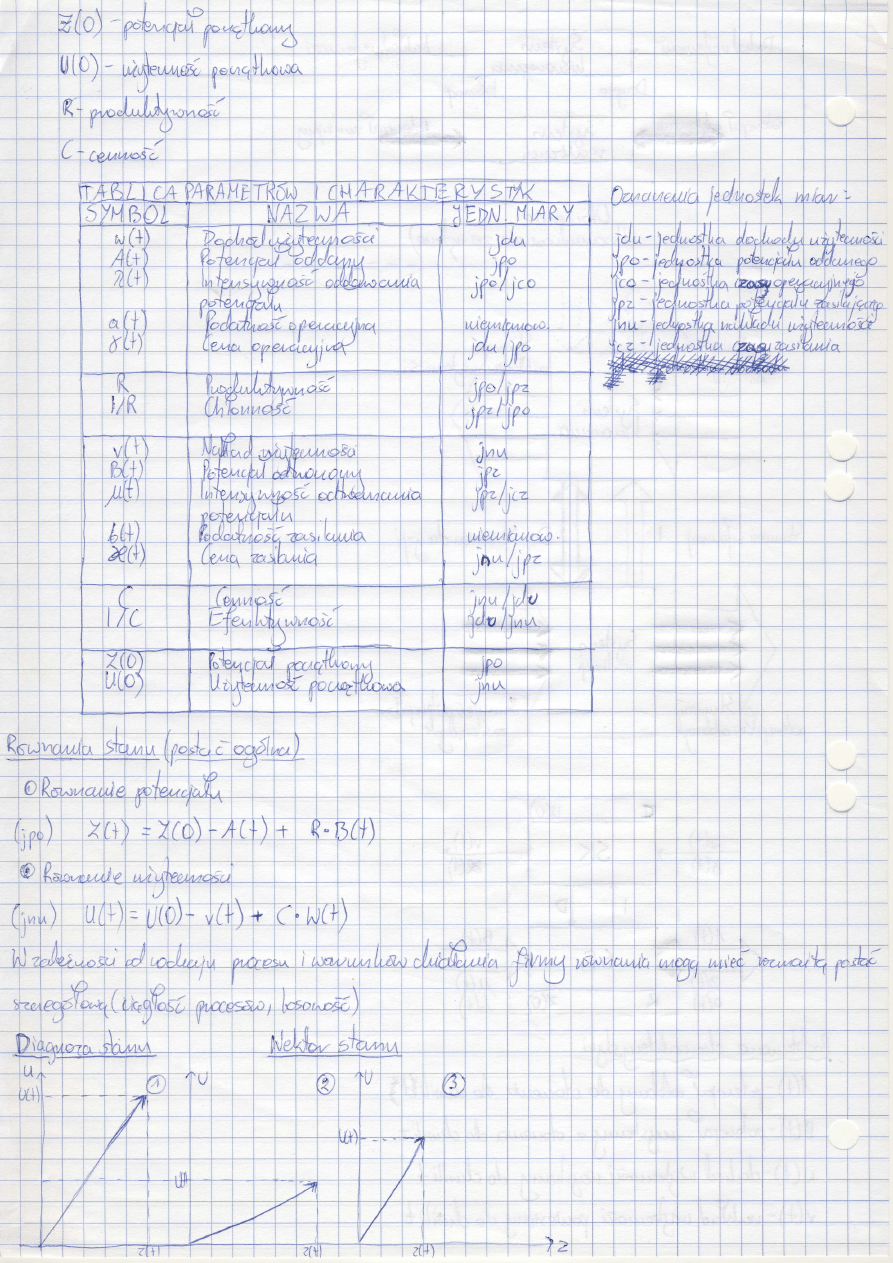 Z(0) - potencjał początkowy
U(0) - użyteczność początkowa
R - produktywność
C - cenność
TABLICA PARAMETRÓW I CHARAKTERYSTYK
SYMBOL NAZWA JEDN. MIARY
w(t) Dochód użyteczności jdu
A(t) Potencjał oddany jpo
λ(t) Intensywność oddawania jpo/jco
potencjału
a(t) Podatność operacyjna niemianow.
γ(t) Cena operacyjna jdu/jpo
R Produktywność jpo/jpz
1/R Chłonność jpz/jpo
v(t) Nakład użyteczności jnu
B(t) Potencjał odtworzony jpz
μ(t) Intensywność odtwarzania jpz/jcz
potencjału
b(t) Podatność zasilania niemianow.
æ(t) Cena zasilania jnu/jpz
C Cenność jnu/jdu
1/C Efektywność jdu/jnu
Z(0) Potencjał początkowy jpo
U(0) Użyteczność początkowa jnu
Oznaczenia jednostek miar:
jdu - jednostka dochodu użyteczności
jpo - jednostka potencjału oddanego
jco - jednostka czasu operacyjnego
jpz - jednostka potencjału zasilającego
jnu - jednostka nakładu użyteczności
jcz - jednostka czasu zasilania
Równania stanu (postać ogólna)
① Równanie potencjału
(jpo) Z(t) = Z(0) - A(t) + R·B(t)
② Równanie użyteczności
(jnu) U(t) = U(0) - v(t) + C·W(t)
W zależności od rodzaju procesu i warunków działania firmy równania mogą mieć rozmaitą postać
szczegółową (ciągłość procesów, losowość)
Diagnoza stanu Wektor stanu
U ① U ② U ③
U(t)
U(t)
U(t)
z(t) z(t) z(t) z